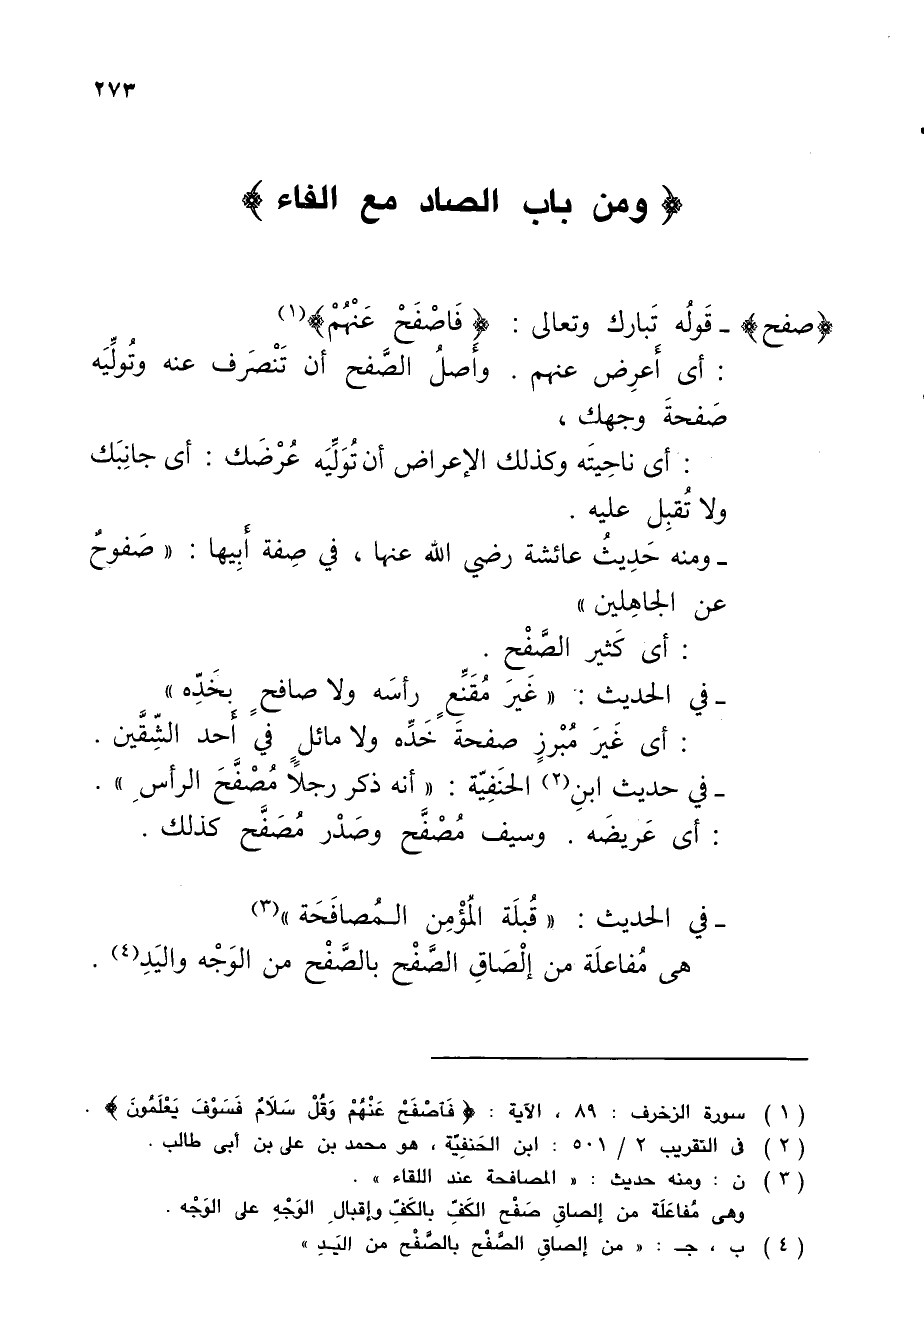 ٢٧٣
﴿ ومن باب الصاد مع الفاء ﴾
﴿صفح﴾ ـ قَولُه تَبارك وتعالى : ﴿ فَاصْفَحْ عَنْهُمْ﴾(١)
: أى أَعرِض عنهم . وأَصلُ الصَّفح أن تَنْصَرَف عنه وتُولِّيَه
صَفحةَ وجهك ،
: أى ناحِيتَه وكذلك الإعراض أن تُوَلِّيَه عُرْضَك : أى جانِبَك
ولا تُقبِل عليه .
ـ ومنه حَدِيثُ عائشة رضي الله عنها ، في صِفة أَبِيها : « صَفوحٌ
عن الجاهِلين »
: أى كَثير الصَّفْح .
ـ في الحديث : « غَيرَ مُقَنِّعٍ رأسَه ولا صافحٍ بِخَدِّه »
: أى غَيرَ مُبْرزٍ صفحةَ خَدِّه ولا مائلٍ في أَحد الشِّقَّين .
ـ في حديث ابنِ(٢) الحَنَفِيّة : « أنه ذكر رجلاً مُصْفَّحَ الرأسِ » .
: أى عَريضَه . وسيف مُصْفَّح وصَدْر مُصَفَّح كذلك .
ـ في الحديث : « قُبلَة المُؤْمِن المُصافَحَة »(٣)
هى مُفاعلَة من إلْصَاقِ الصَّفْح بالصَّفْح من الوَجْه واليَدِ(٤) .
(١) سورة الزخرف : ٨٩ ، الآية : ﴿ فَٱصْفَحْ عَنْهُمْ وَقُلْ سَلَامٌ فَسَوْفَ يَعْلَمُونَ ﴾ .
(٢) فى التقريب ٢ / ٥٠١ : ابن الحَنفِيّة ، هو محمد بن على بن أبى طالب .
(٣) ن : ومنه حديث : « المصافحة عند اللقاء » .
وهى مُفاعَلَة من إلصاقِ صَفْح الكَفِّ بالكَفِّ وإقبالِ الوَجْهِ على الوَجْه .
(٤) ب ، جـ : « من إلصاقِ الصَّفْح بالصَّفْح من اليَدِ »